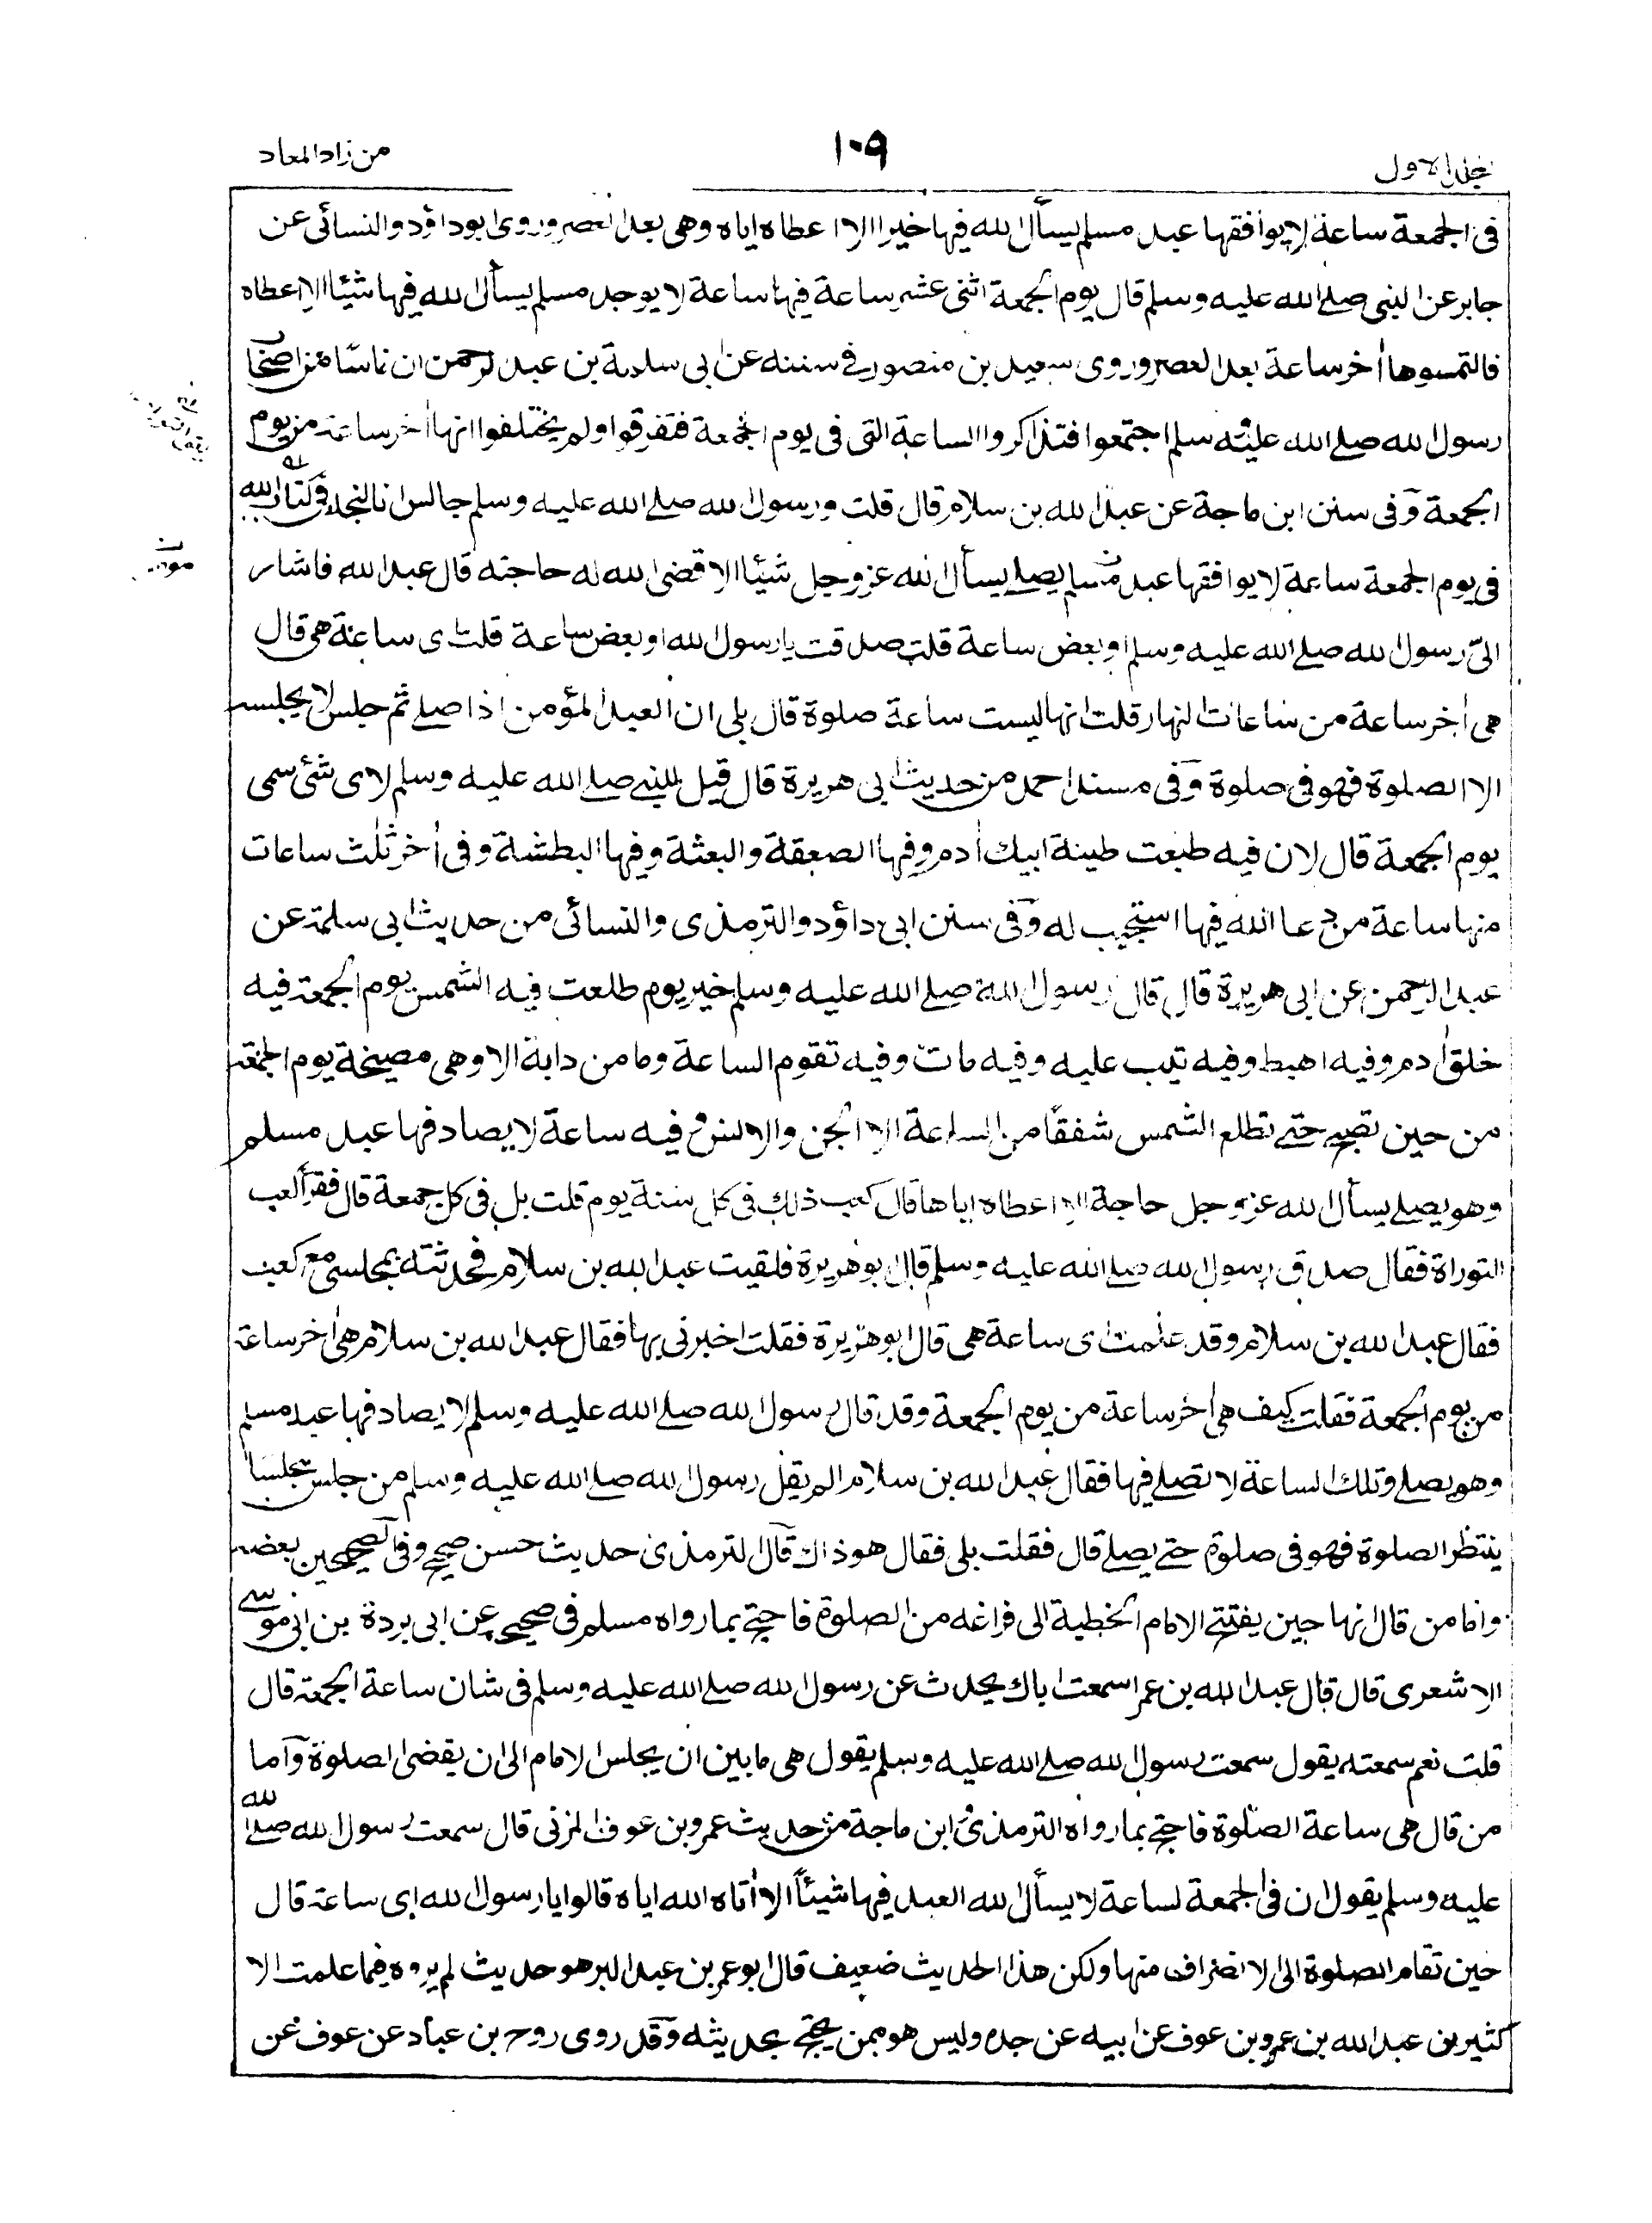 من زاد المعاد
١٠٩
الاول
فى الجمعة ساعة لا يوافقها عبد مسلم يسأل الله فيها خيرا الا اعطاه اياه وهى بعد العصر وروى ابوداؤد والنسائى عن
جابر عن النبى صلى الله عليه وسلم قال يوم الجمعة اثنى عشر ساعة فيها ساعة لا يوجد مسلم يسأل الله فيها شيئا الا اعطاه
فالتمسوها أخر ساعة بعد العصر وروى سعيد بن منصور فى سننه عن ابى سلمة بن عبد الرحمن ان ناسًا من اصحاب
رسول الله صلى الله عليه وسلم اجتمعوا فتذاكروا الساعة التى فى يوم الجمعة فتفرقوا ولم يختلفوا انها أخر ساعة من يوم
الجمعة وفى سنن ابن ماجة عن عبد الله بن سلام قال قلت ورسول الله صلى الله عليه وسلم جالس انا لنجد فى كتاب الله
فى يوم الجمعة ساعة لا يوافقها عبد مسلم يصلى يسأل الله عز وجل شيئا الا قضى الله له حاجته قال عبد الله فاشار
الىّ رسول الله صلى الله عليه وسلم او بعض ساعة قلت صدقت يا رسول الله او بعض ساعة قلت اى ساعة هى قال
هى أخر ساعة من ساعات النهار قلت انها ليست ساعة صلوة قال بلى ان العبد المؤمن اذا صلى ثم جلس لا يجلسه
الا الصلوة فهو فى صلوة وفى مسند احمد من حديث ابى هريرة قال قيل للنبى صلى الله عليه وسلم لاى شئ سمى
يوم الجمعة قال لان فيه طبعت طينة ابيك أدم وفيها الصعقة والبعثة وفيها البطشة وفى أخر ثلث ساعات
منها ساعة من دعا الله فيها استجيب له وفى سنن ابى داؤد والترمذى والنسائى من حديث ابى سلمة عن
عبد الرحمن عن ابى هريرة قال قال رسول الله صلى الله عليه وسلم خير يوم طلعت فيه الشمس يوم الجمعة فيه
خلق أدم وفيه اهبط وفيه تيب عليه وفيه مات وفيه تقوم الساعة وما من دابة الا وهى مصيخة يوم الجمعة
من حين تصبح حتى تطلع الشمس شفقًا من الساعة الا الجن والانس وفيه ساعة لا يصادفها عبد مسلم
وهو يصلى يسأل الله عز وجل حاجة الا اعطاه اياها قال كعب ذلك فى كل سنة يوم قلت بل فى كل جمعة قال فقرأ كعب
التوراة فقال صدق رسول الله صلى الله عليه وسلم قال ابو هريرة فلقيت عبد الله بن سلام فحدثته بمجلسى مع كعب
فقال عبد الله بن سلام وقد علمت اى ساعة هى قال ابو هريرة فقلت اخبرنى بها فقال عبد الله بن سلام هى أخر ساعة
من يوم الجمعة فقلت كيف هى أخر ساعة من يوم الجمعة وقد قال رسول الله صلى الله عليه وسلم لا يصادفها عبد مسلم
وهو يصلى وتلك الساعة لا تصلى فيها فقال عبد الله بن سلام الم يقل رسول الله صلى الله عليه وسلم من جلس مجلسا
ينتظر الصلوة فهو فى صلوة حتى يصلى قال فقلت بلى فقال هو ذاك قال الترمذى حديث حسن صحيح وفى الصحيحين بعضه
واما من قال انها حين يفتتح الامام الخطبة الى فراغه من الصلوة فاحتج بما رواه مسلم فى صحيحه عن ابى بردة بن ابى موسى
الاشعرى قال قال عبد الله بن عمر اسمعت اباك يحدث عن رسول الله صلى الله عليه وسلم فى شان ساعة الجمعة قال
قلت نعم سمعته يقول سمعت رسول الله صلى الله عليه وسلم يقول هى ما بين ان يجلس الامام الى ان يقضى الصلوة وآما
من قال هى ساعة الصلوة فاحتج بما رواه الترمذى وابن ماجة من حديث عمرو بن عوف المزنى قال سمعت رسول الله صلى الله
عليه وسلم يقول ان فى الجمعة لساعة لا يسأل الله العبد فيها شيئًا الا أتاه الله اياه قالوا يا رسول الله اى ساعة قال
حين تقام الصلوة الى الانصراف منها ولكن هذا الحديث ضعيف قال ابو عمر بن عبد البر هو حديث لم يروه فيما علمت الا
كثير بن عبد الله بن عمرو بن عوف عن ابيه عن جده وليس هو ممن يحتج بحديثه وقد روى روح بن عباد عن عوف عن